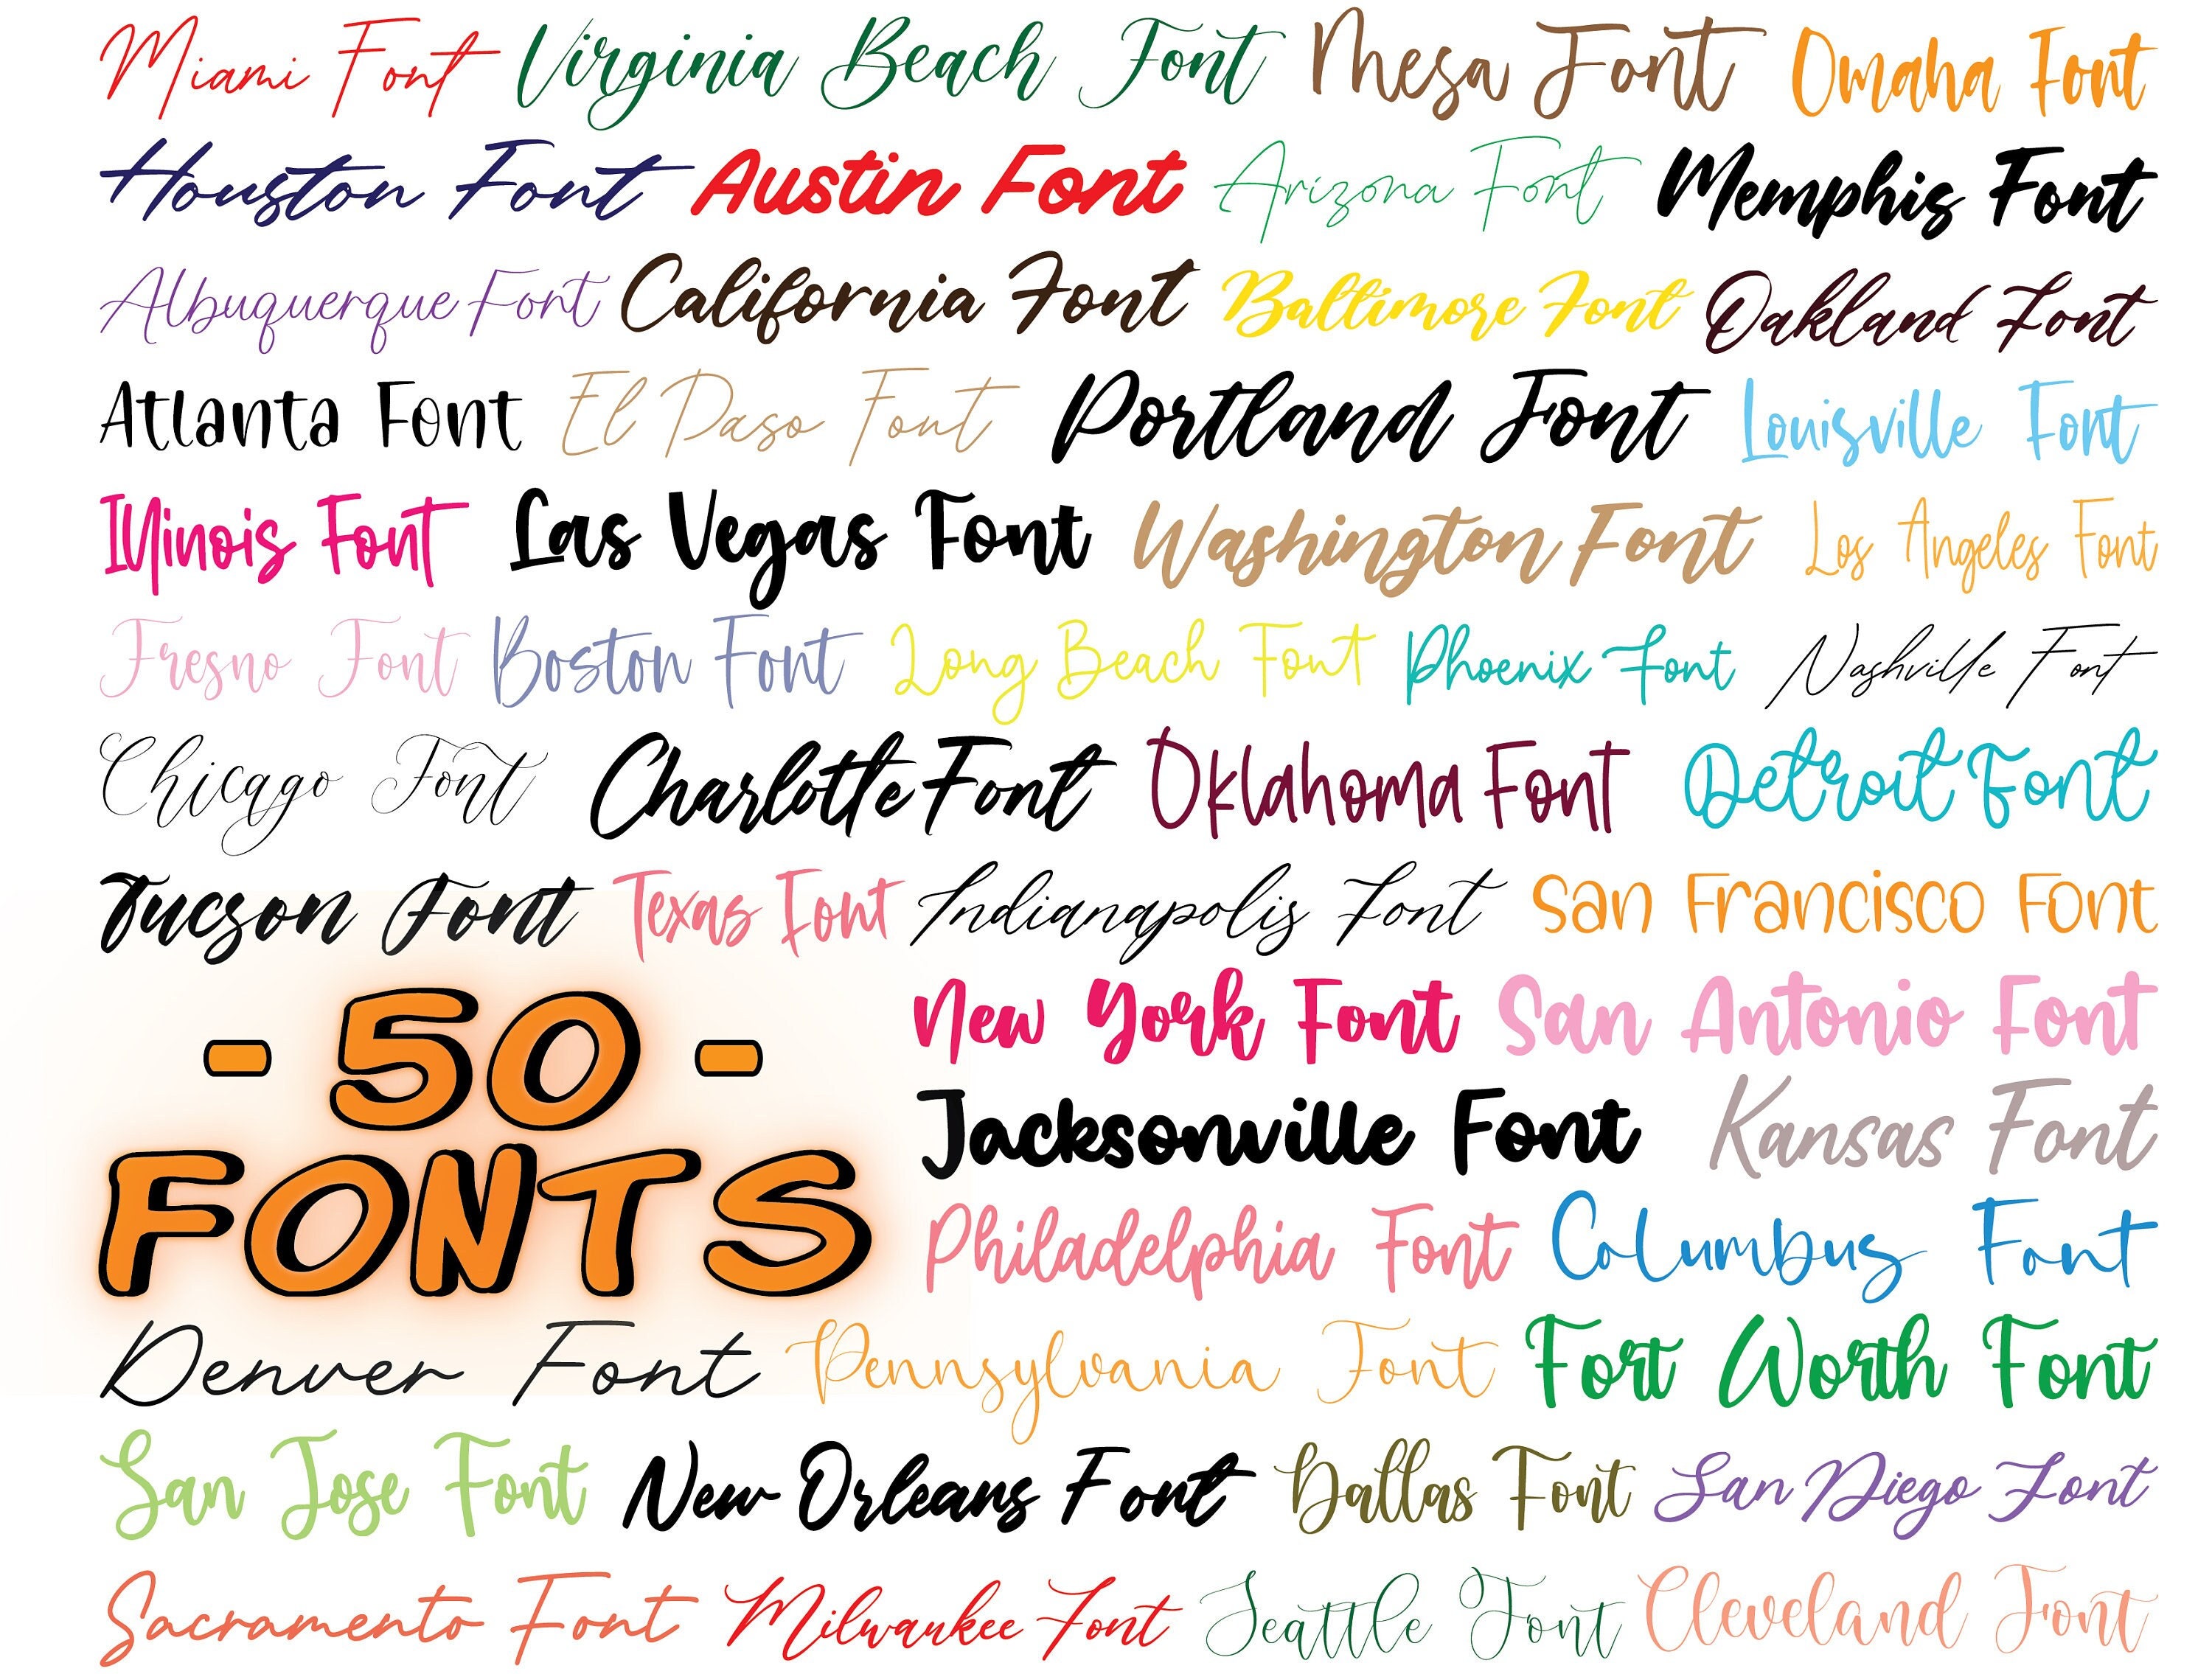 Miami Font Virginia Beach Font Mesa Font Omaha Font
Houston Font Austin Font Arizona Font Memphis Font
Albuquerque Font California Font Baltimore Font Oakland Font
Atlanta Font El Paso Font Portland Font Louisville Font
Illinois Font Las Vegas Font Washington Font Los Angeles Font
Fresno Font Boston Font Long Beach Font Phoenix Font Nashville Font
Chicago Font Charlotte Font Oklahoma Font Detroit Font
Tucson Font Texas Font Indianapolis Font San Francisco Font
- 50 -
FONTS
New York Font San Antonio Font
Jacksonville Font Kansas Font
Philadelphia Font Columbus Font
Denver Font Pennsylvania Font Fort Worth Font
San Jose Font New Orleans Font Dallas Font San Diego Font
Sacramento Font Milwaukee Font Seattle Font Cleveland Font